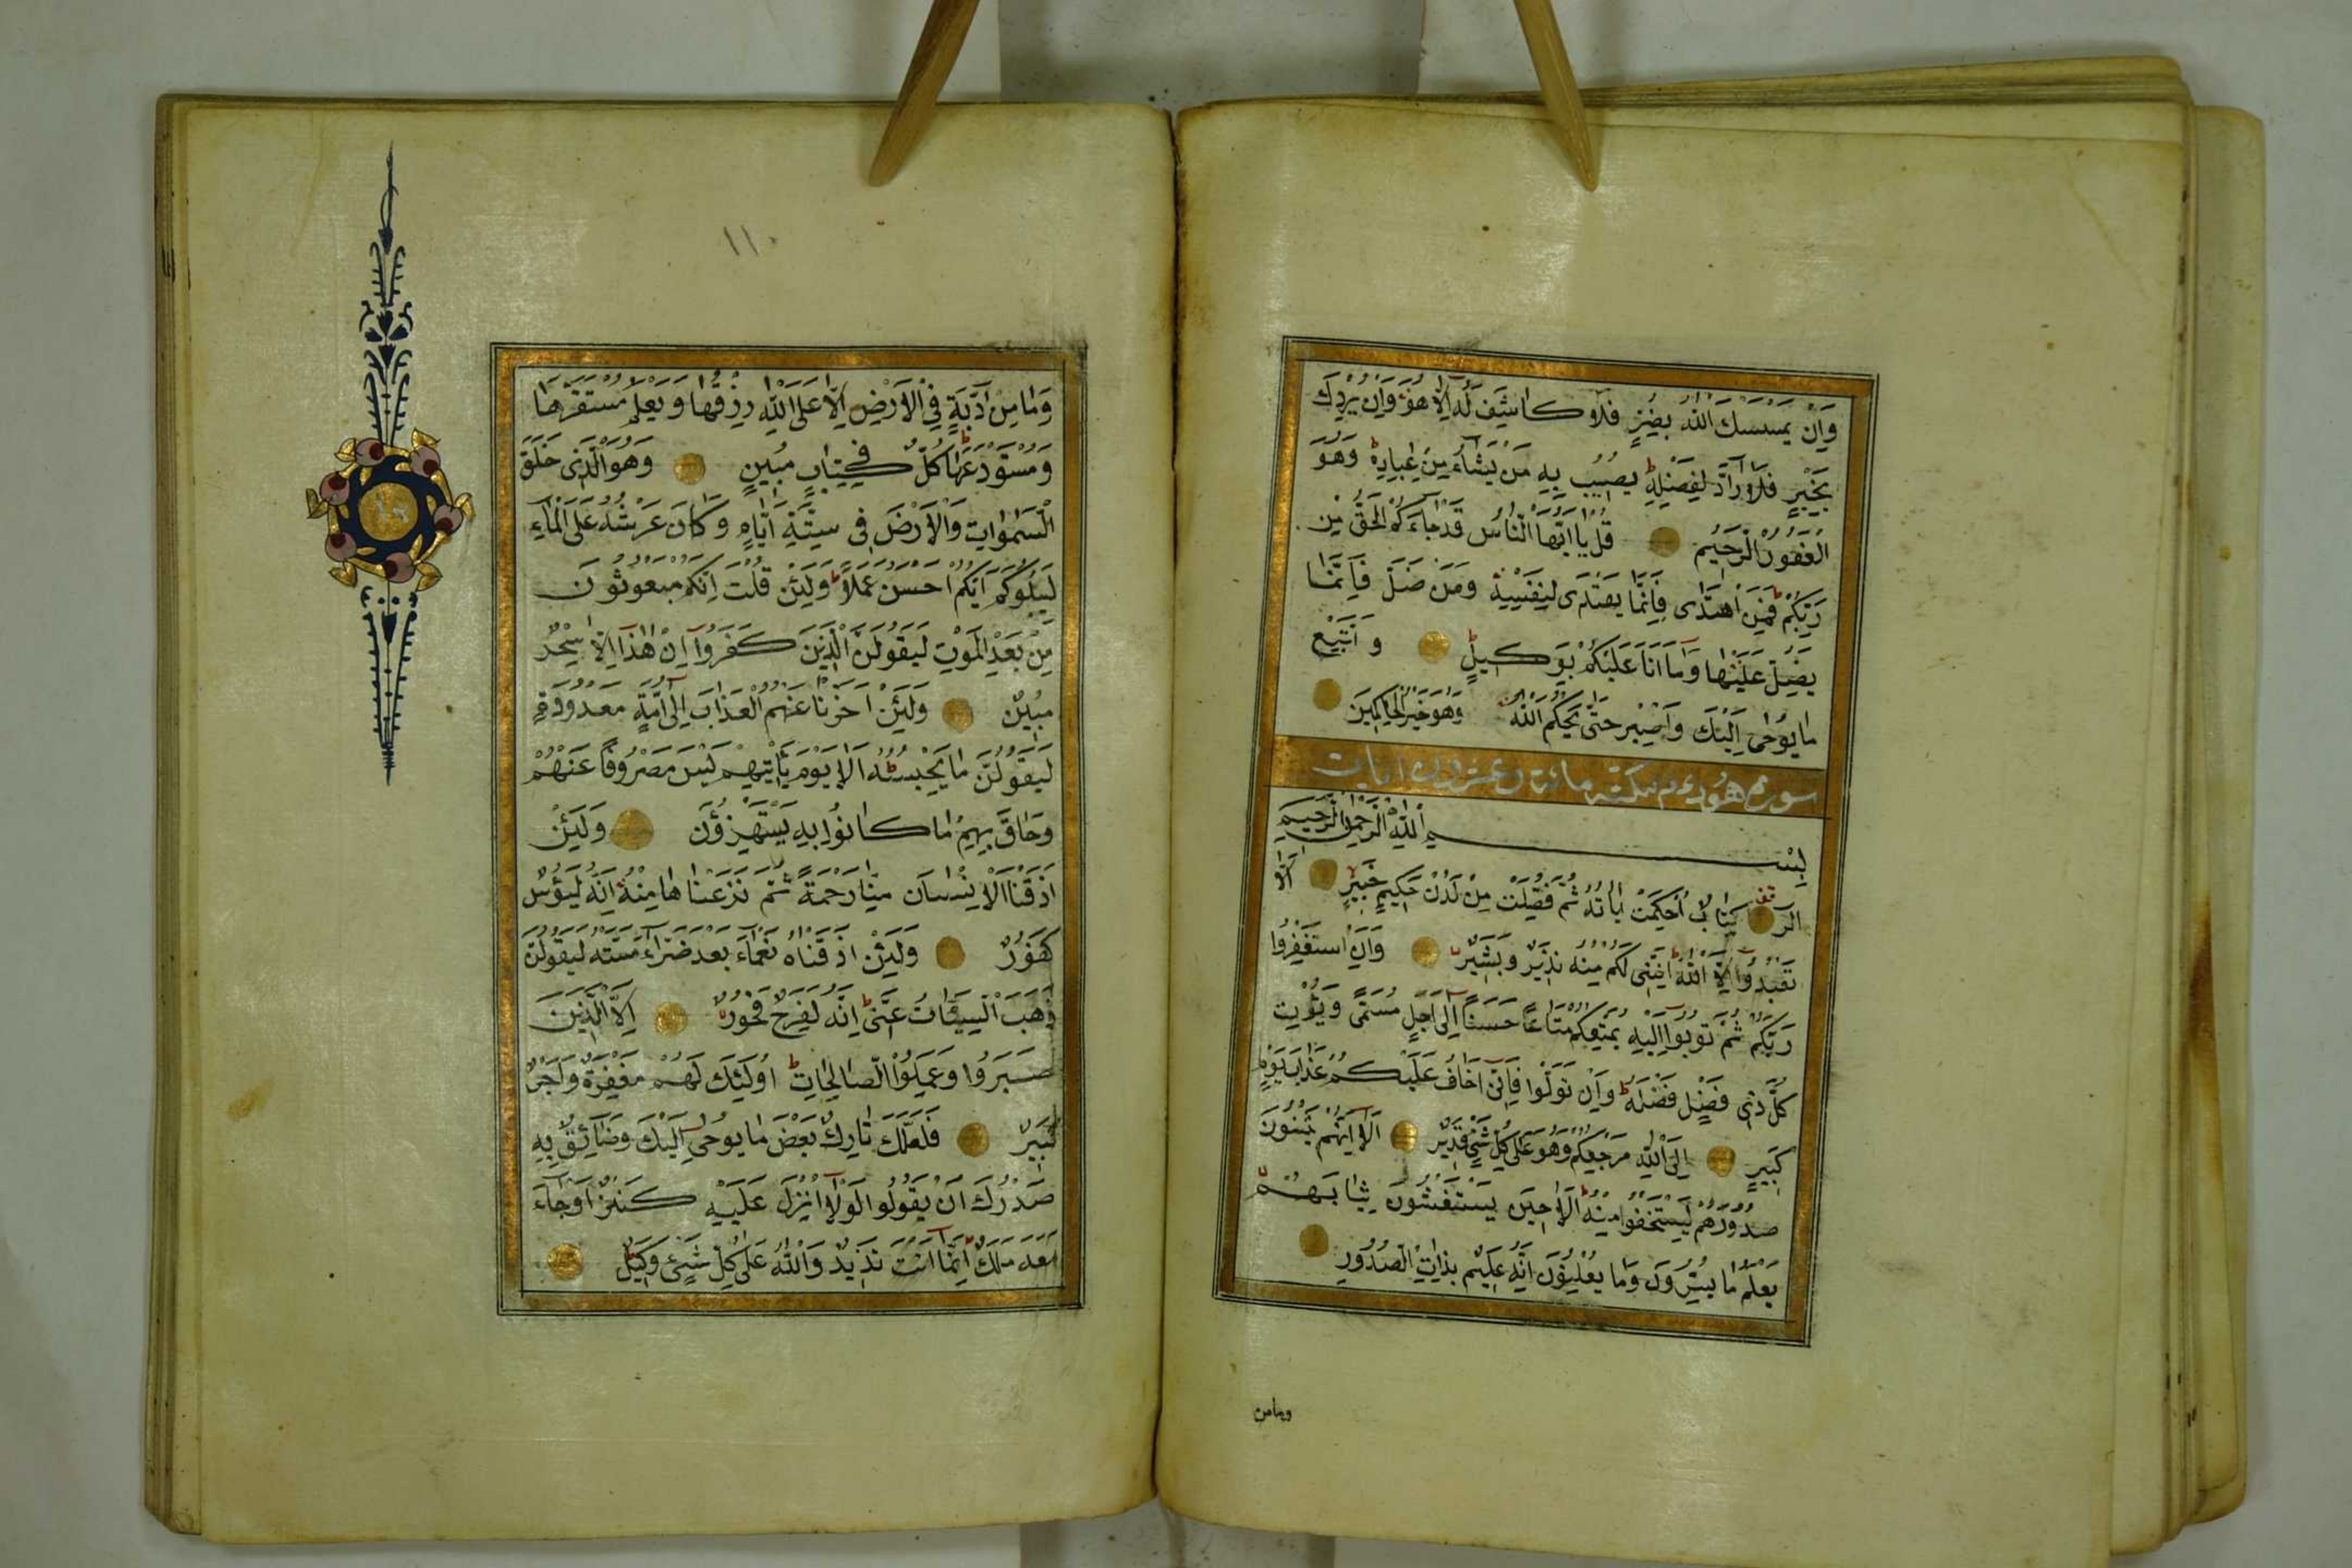 وَاِنْ يَمْسَسْكَ اللّٰهُ بِضُرٍّ فَلَا كَاشِفَ لَهُ اِلَّا هُوَ وَاِنْ يُرِدْكَ
بِخَيْرٍ فَلَا رَادَّ لِفَضْلِهِ يُصِيبُ بِهِ مَنْ يَشَاءُ مِنْ عِبَادِهِ وَهُوَ
الْغَفُورُ الرَّحِيمُ قُلْ يَا اَيُّهَا النَّاسُ قَدْ جَاءَكُمُ الْحَقُّ مِنْ
رَبِّكُمْ فَمَنِ اهْتَدٰى فَاِنَّمَا يَهْتَدِى لِنَفْسِهِ وَمَنْ ضَلَّ فَاِنَّمَا
يَضِلُّ عَلَيْهَا وَمَا اَنَا عَلَيْكُمْ بِوَكِيلٍ وَاتَّبِعْ
مَا يُوحٰى اِلَيْكَ وَاصْبِرْ حَتّٰى يَحْكُمَ اللّٰهُ وَهُوَ خَيْرُ الْحَاكِمِينَ
سورة هود مكية مائة وعشرون ايات
بِسْمِ اللّٰهِ الرَّحْمٰنِ الرَّحِيمِ
الر كِتَابٌ اُحْكِمَتْ اٰيَاتُهُ ثُمَّ فُصِّلَتْ مِنْ لَدُنْ حَكِيمٍ خَبِيرٍ اَلَّا
تَعْبُدُوا اِلَّا اللّٰهَ اِنَّنِى لَكُمْ مِنْهُ نَذِيرٌ وَبَشِيرٌ وَاَنِ اسْتَغْفِرُوا
رَبَّكُمْ ثُمَّ تُوبُوا اِلَيْهِ يُمَتِّعْكُمْ مَتَاعًا حَسَنًا اِلٰى اَجَلٍ مُسَمًّى وَيُؤْتِ
كُلَّ ذِى فَضْلٍ فَضْلَهُ وَاِنْ تَوَلَّوْا فَاِنِّى اَخَافُ عَلَيْكُمْ عَذَابَ يَوْمٍ
كَبِيرٍ اِلَى اللّٰهِ مَرْجِعُكُمْ وَهُوَ عَلٰى كُلِّ شَىْءٍ قَدِيرٌ اَلَا اِنَّهُمْ يَثْنُونَ
صُدُورَهُمْ لِيَسْتَخْفُوا مِنْهُ اَلَا حِينَ يَسْتَغْشُونَ ثِيَابَهُمْ
يَعْلَمُ مَا يُسِرُّونَ وَمَا يُعْلِنُونَ اِنَّهُ عَلِيمٌ بِذَاتِ الصُّدُورِ
وما من
١١٠
وَمَا مِنْ دَابَّةٍ فِى الْاَرْضِ اِلَّا عَلَى اللّٰهِ رِزْقُهَا وَيَعْلَمُ مُسْتَقَرَّهَا
وَمُسْتَوْدَعَهَا كُلٌّ فِى كِتَابٍ مُبِينٍ وَهُوَ الَّذِى خَلَقَ
السَّمٰوَاتِ وَالْاَرْضَ فِى سِتَّةِ اَيَّامٍ وَكَانَ عَرْشُهُ عَلَى الْمَاءِ
لِيَبْلُوَكُمْ اَيُّكُمْ اَحْسَنُ عَمَلًا وَلَئِنْ قُلْتَ اِنَّكُمْ مَبْعُوثُونَ
مِنْ بَعْدِ الْمَوْتِ لَيَقُولَنَّ الَّذِينَ كَفَرُوا اِنْ هٰذَا اِلَّا سِحْرٌ
مُبِينٌ وَلَئِنْ اَخَّرْنَا عَنْهُمُ الْعَذَابَ اِلٰى اُمَّةٍ مَعْدُودَةٍ
لَيَقُولُنَّ مَا يَحْبِسُهُ اَلَا يَوْمَ يَأْتِيهِمْ لَيْسَ مَصْرُوفًا عَنْهُمْ
وَحَاقَ بِهِمْ مَا كَانُوا بِهِ يَسْتَهْزِؤُنَ وَلَئِنْ
اَذَقْنَا الْاِنْسَانَ مِنَّا رَحْمَةً ثُمَّ نَزَعْنَاهَا مِنْهُ اِنَّهُ لَيَؤُسٌ
كَفُورٌ وَلَئِنْ اَذَقْنَاهُ نَعْمَاءَ بَعْدَ ضَرَّاءَ مَسَّتْهُ لَيَقُولَنَّ
ذَهَبَ السَّيِّئَاتُ عَنِّى اِنَّهُ لَفَرِحٌ فَخُورٌ اِلَّا الَّذِينَ
صَبَرُوا وَعَمِلُوا الصَّالِحَاتِ اُولٰئِكَ لَهُمْ مَغْفِرَةٌ وَاَجْرٌ
كَبِيرٌ فَلَعَلَّكَ تَارِكٌ بَعْضَ مَا يُوحٰى اِلَيْكَ وَضَائِقٌ بِهِ
صَدْرُكَ اَنْ يَقُولُوا لَوْلَا اُنْزِلَ عَلَيْهِ كَنْزٌ اَوْ جَاءَ
مَعَهُ مَلَكٌ اِنَّمَا اَنْتَ نَذِيرٌ وَاللّٰهُ عَلٰى كُلِّ شَىْءٍ وَكِيلٌ